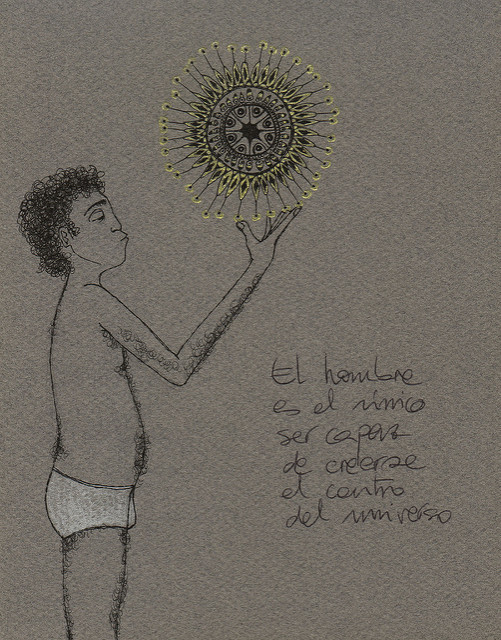 El hombre
es el único
ser capaz
de creerse
el centro
del universo